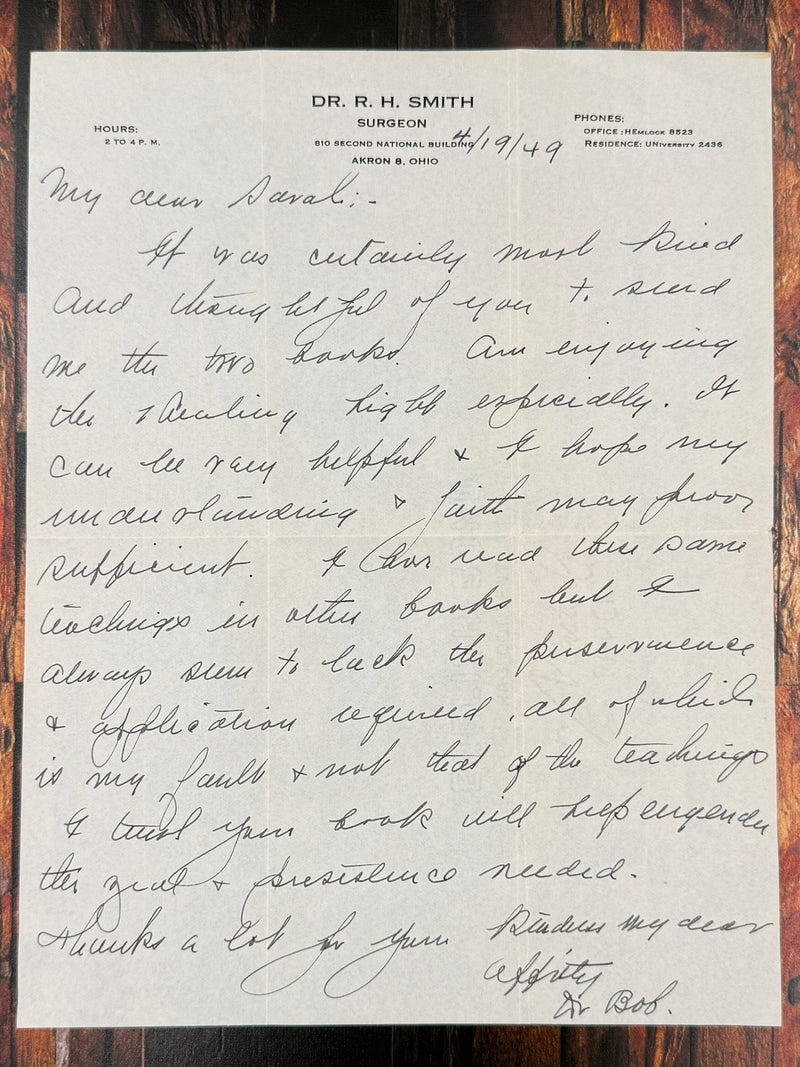 DR. R. H. SMITH
SURGEON
810 SECOND NATIONAL BUILDING
AKRON 8, OHIO
HOURS:
2 TO 4 P. M.
PHONES:
OFFICE : HEMLOCK 8523
RESIDENCE: UNIVERSITY 2436
4/19/49
My dear Sarah:-
It was certainly most kind
and thoughtful of you to send
me the two books. Am enjoying
the Healing Light especially. It
can be very helpful & I hope my
understanding & faith may prove
sufficient. I have read these same
teachings in other books but I
always seem to lack the perserverence
& application required, all of which
is my fault & not that of the teachings
I trust your book will help engender
the zeal & presistence needed.
Thanks a lot for your kindness my dear
Affity
Dr Bob.